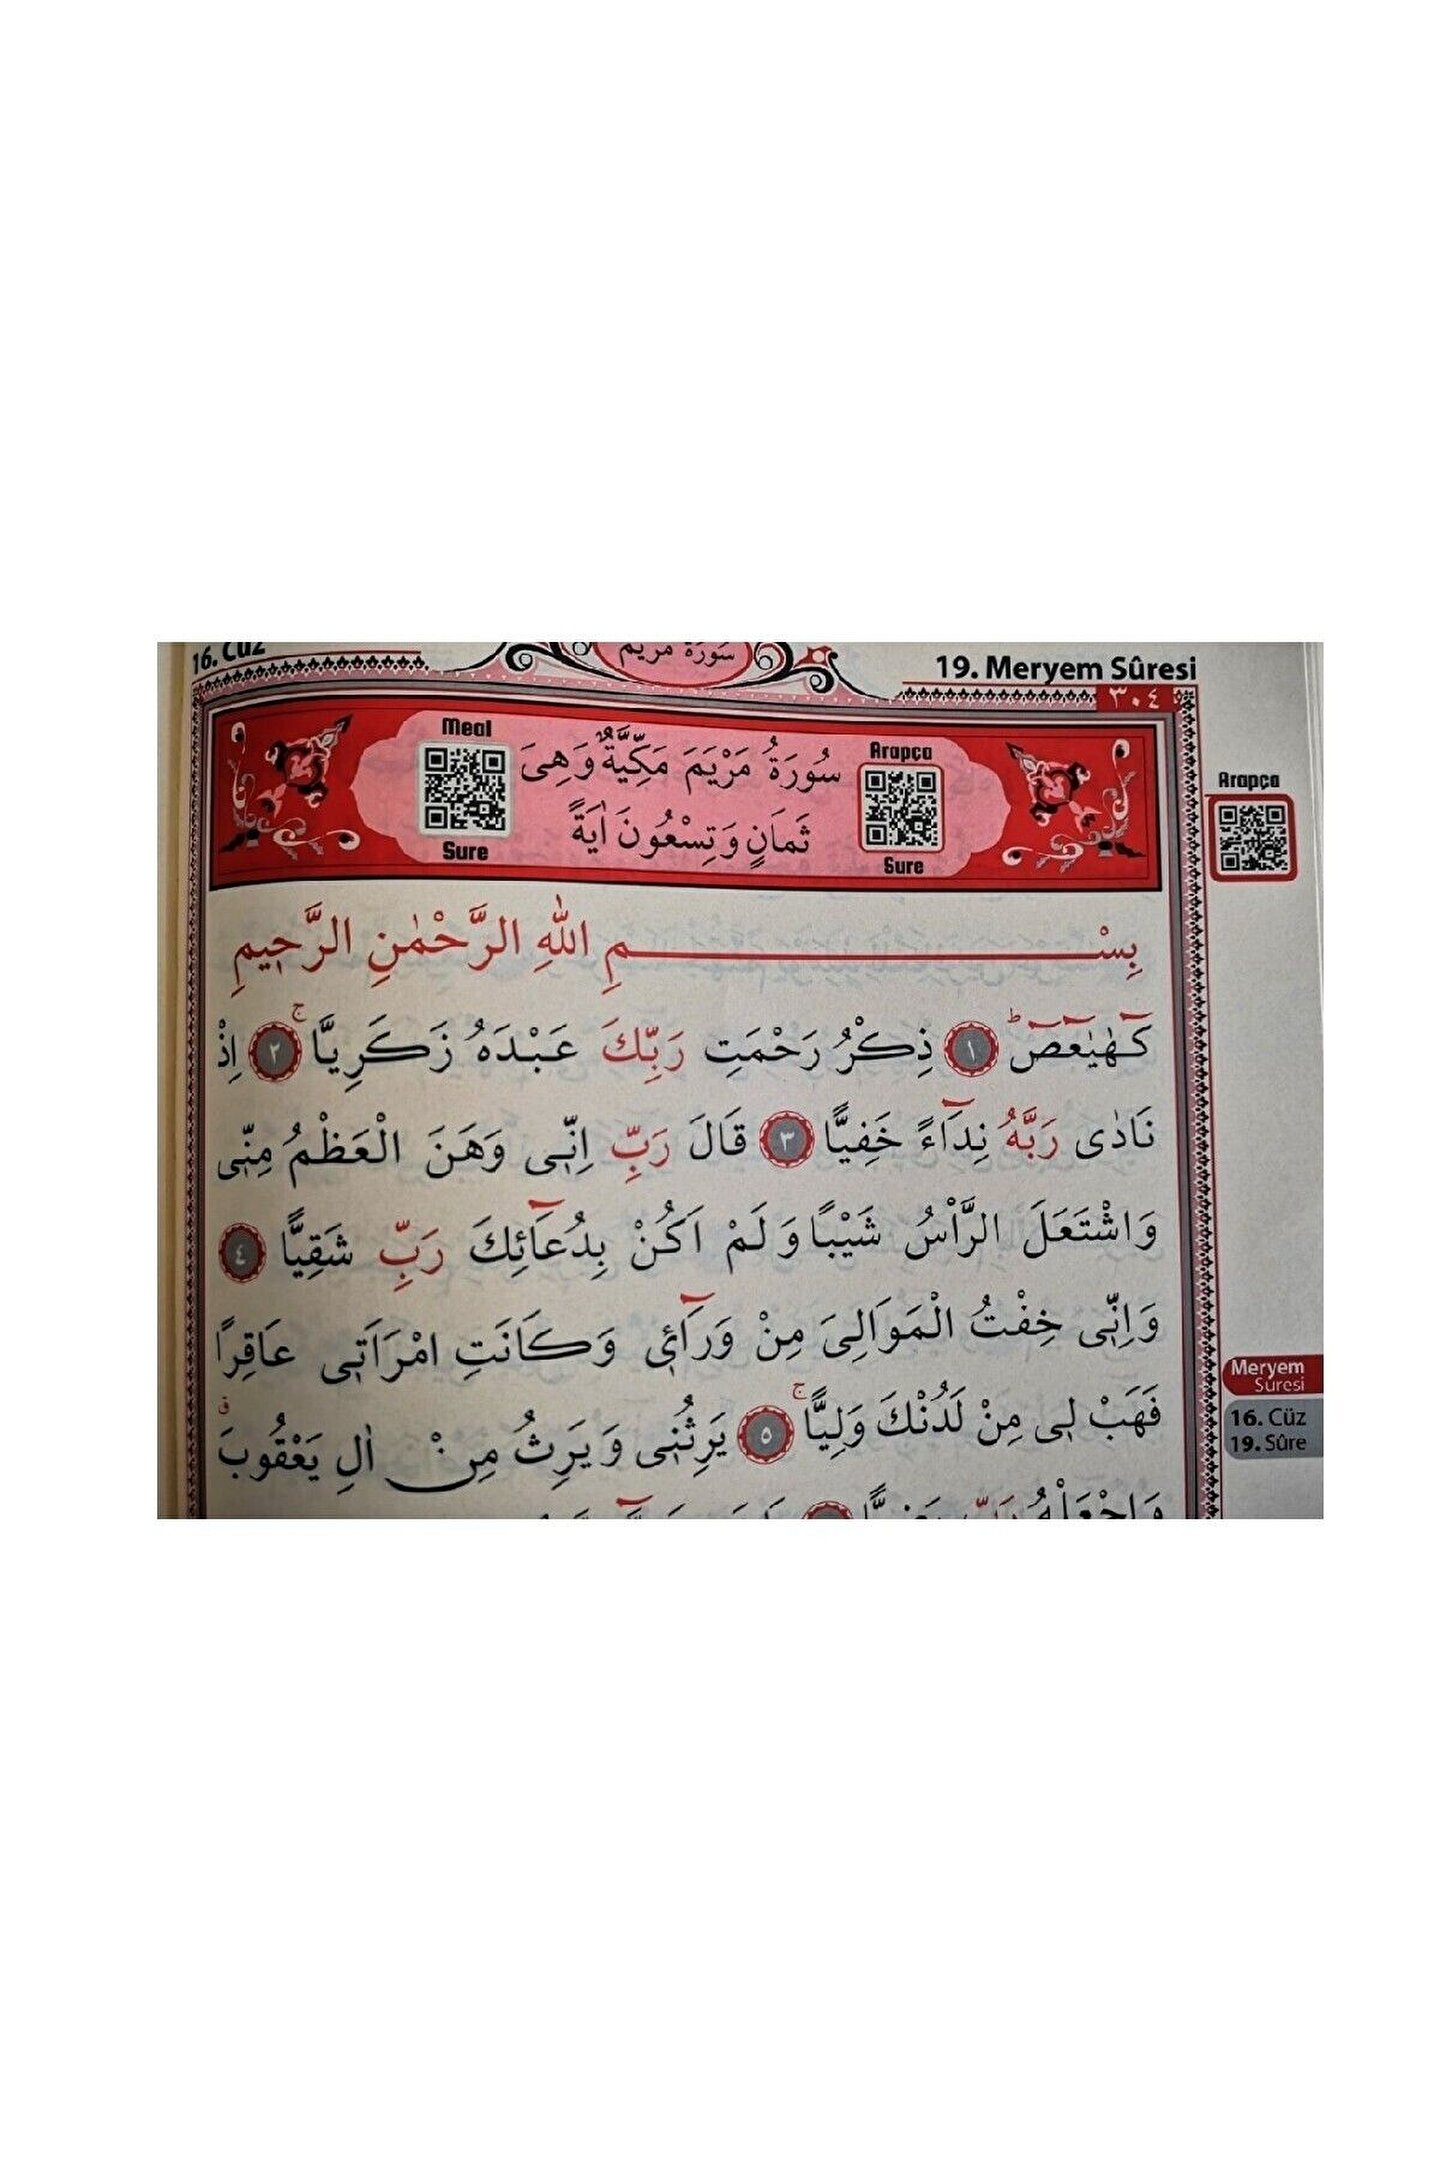 16. Cüz
سورة مريم
19. Meryem Sûresi
٣٠٤
Meal
Sure
سُورَةُ مَرْيَمَ مَكِّيَّةٌ وَهِىَ
ثَمَانٍ وَتِسْعُونَ اٰيَةً
Arapça
Sure
Arapça
بِسْمِ اللّٰهِ الرَّحْمٰنِ الرَّحِيمِ
كٓهٰيٰعٓصٓ ط ١ ذِكْرُ رَحْمَتِ رَبِّكَ عَبْدَهُ زَكَرِيَّا ج ٢ اِذْ
نَادٰى رَبَّهُ نِدَآءً خَفِيًّا ٣ قَالَ رَبِّ اِنّ۪ى وَهَنَ الْعَظْمُ مِنّ۪ى
وَاشْتَعَلَ الرَّاْسُ شَيْبًا وَلَمْ اَكُنْ بِدُعَآئِكَ رَبِّ شَقِيًّا ٤
وَاِنّ۪ى خِفْتُ الْمَوَالِىَ مِنْ وَرَآئ۪ى وَكَانَتِ امْرَاَت۪ى عَاقِرًا
فَهَبْ ل۪ى مِنْ لَدُنْكَ وَلِيًّا ج ٥ يَرِثُن۪ى وَيَرِثُ مِنْ اٰلِ يَعْقُوبَ ق
وَاجْعَلْهُ رَبِّ
Meryem
Suresi
16. Cüz
19. Sûre